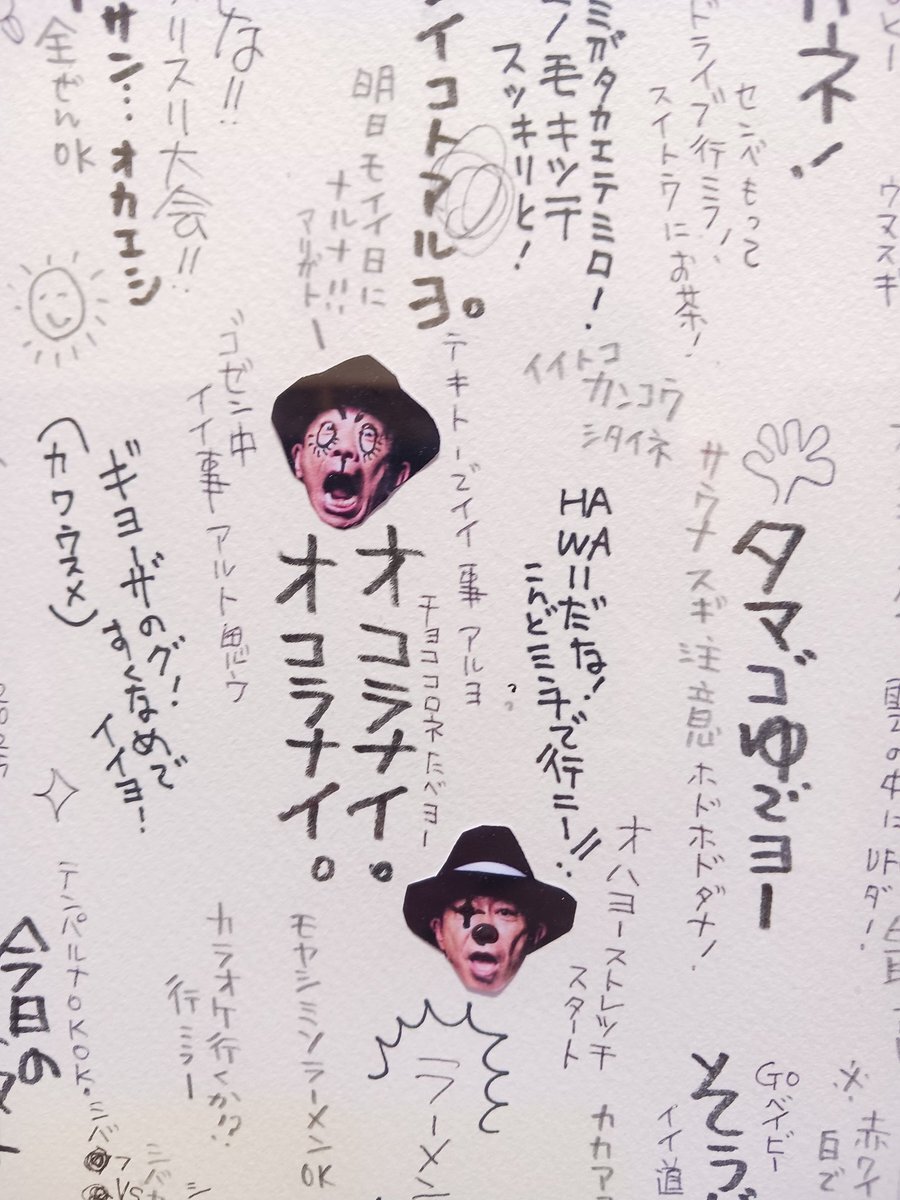 ーネ!
センベもって
ドライブ行ミラ!
スイトウにお茶!
ウマスギ
ミガタカエテミロー!
ノモキッテ
スッキリと!
イコトアルヨ。
明日モイイ日に
ナルナ!!
アリガトー
な!!
リスリ大会!!
サン…オカエシ
全ぜんOK
イイトコ
カンコウ
シタイネ
タマゴゆでヨー
サウナスギ注意 ホドホドダナ!
HA
WAIIだな!
こんどミニチで行ニー!!
テキトーでイイ事アルヨ
チョココロネたべヨー
オコラナイ。
オコラナイ。
ゴゼン中
イイ事アルト思ウ
ギョーザのグ!
すくなめで
イイヨー
(カワウスメ)
雲の中に
UF
ダ!
オハヨーストレッチ
スタート
モヤシミソラーメンOK
カラオケ行くか!?
行ミラー
テンパルナOKOK。
今日の
ラーメン
そう
GOベイビー
イイ道
※赤ワイ
自で
VS